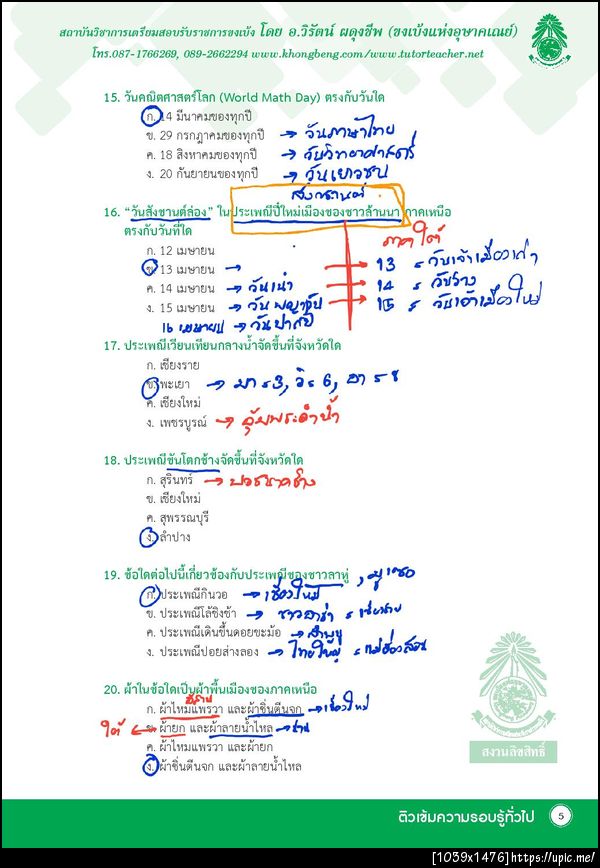 สถาบันวิชาการเตรียมสอบรับราชการขงเบ้ง โดย อ.วิรัตน์ ผดุงชีพ (ขงเบ้งแห่งอุษาคเณย์)
โทร.087-1766269, 089-2662294 www.khongbeng.com/www.tutorteacher.net
15. วันคณิตศาสตร์โลก (World Math Day) ตรงกับวันใด
ก. 14 มีนาคมของทุกปี
ข. 29 กรกฎาคมของทุกปี → วันภาษาไทย
ค. 18 สิงหาคมของทุกปี → วันวิทยาศาสตร์
ง. 20 กันยายนของทุกปี → วันเยาวชน
สงกรานต์
16. "วันสังขานต์ล่อง" ในประเพณีปี๋ใหม่เมืองของชาวล้านนา ภาคเหนือ
ตรงกับวันที่ใด
ภาคใต้
ก. 12 เมษายน
ข. 13 เมษายน → 13 = วันเจ้าเมืองเก่า
ค. 14 เมษายน → วันเน่า 14 = วันว่าง
ง. 15 เมษายน → วันพญาวัน 15 = วันเจ้าเมืองใหม่
16 เมษายน → วันปากปี
17. ประเพณีเวียนเทียนกลางน้ำจัดขึ้นที่จังหวัดใด
ก. เชียงราย
ข. พะเยา → มา = 3, วิ = 6, อา = 8
ค. เชียงใหม่
ง. เพชรบูรณ์ → อุ้มพระดำน้ำ
18. ประเพณีขันโตกช้างจัดขึ้นที่จังหวัดใด
ก. สุรินทร์ → บวชนาคช้าง
ข. เชียงใหม่
ค. สุพรรณบุรี
ง. ลำปาง
19. ข้อใดต่อไปนี้เกี่ยวข้องกับประเพณีของชาวลาหู่ , มูเซอ
ก. ประเพณีกินวอ → เชียงใหม่
ข. ประเพณีโล้ชิงช้า → ชาวอาข่า = เชียงราย
ค. ประเพณีเดินขึ้นดอยขะม้อ → ลำพูน
ง. ประเพณีปอยส่างลอง → ไทยใหญ่ = แม่ฮ่องสอน
20. ผ้าในข้อใดเป็นผ้าพื้นเมืองของภาคเหนือ
อีสาน
ก. ผ้าไหมแพรวา และผ้าซิ่นตีนจก → เชียงใหม่
ใต้ ← ข. ผ้ายก และผ้าลายน้ำไหล → น่าน
ค. ผ้าไหมแพรวา และผ้ายก
ง. ผ้าซิ่นตีนจก และผ้าลายน้ำไหล
สงวนลิขสิทธิ์
ติวเข้มความรอบรู้ทั่วไป 5
[1039x1476]https://upic.me/